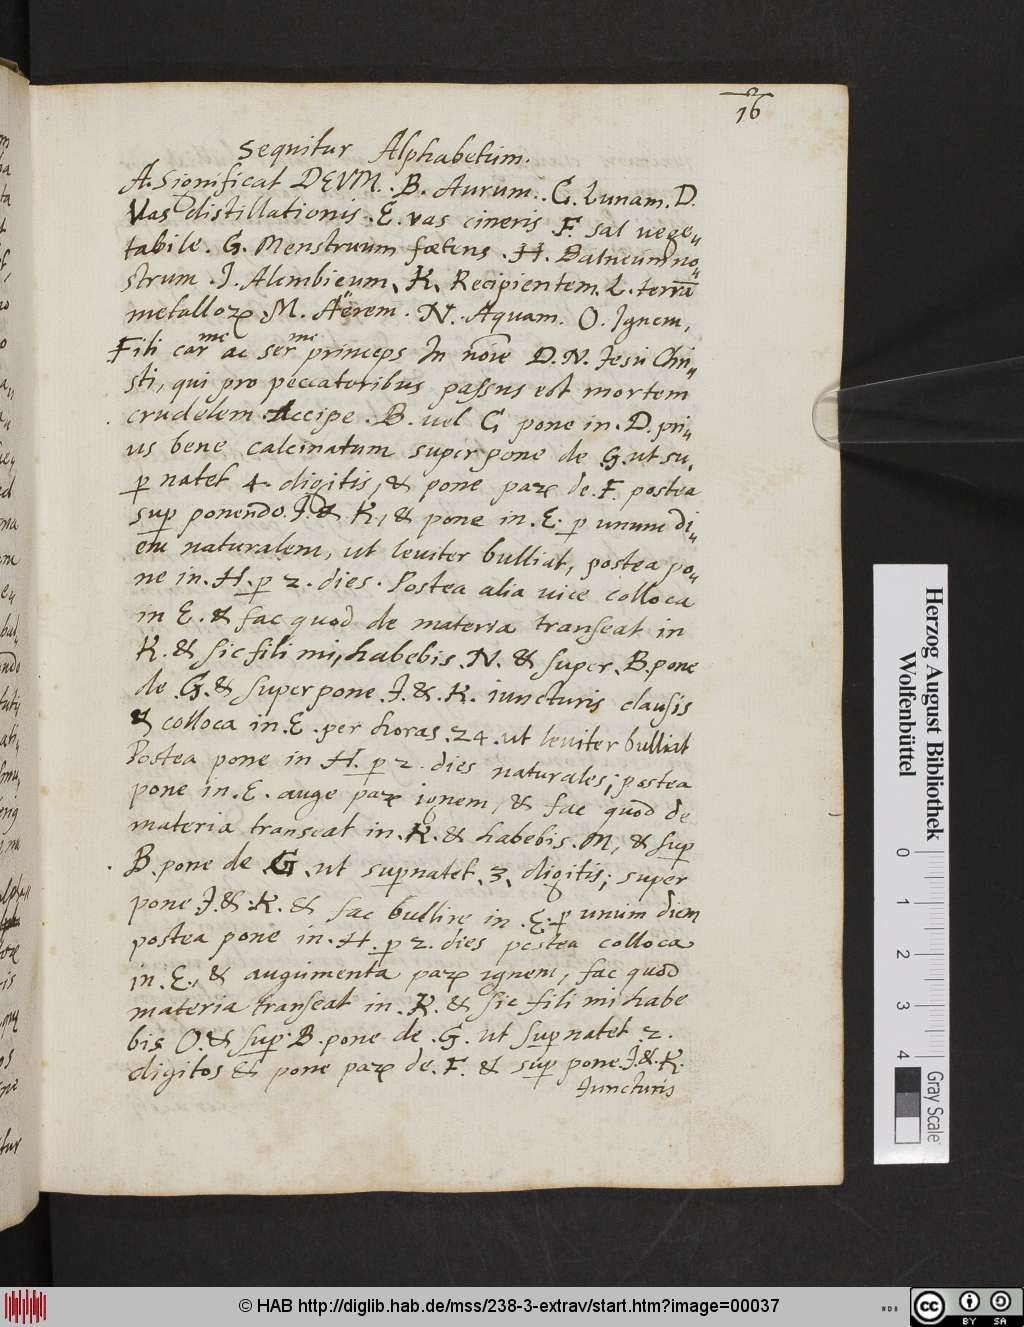 16
Sequitur Alphabetum.
A. Significat DEVM. B. Aurum. C. Lunam. D.
Vas distillationis. E. vas cineris. F. sal vege„
tabile. G. Menstruum fœtens. H. Balneum no„
strum. I. Alembicum, K. Recipientem. L. terrā
metalloꝝ. M. Aërem. N. Aquam. O. Ignem,
Fili carᵐᵉ ac serᵐᵉ princeps In noīe D. N. Jesu Chri„
sti, qui pro peccatoribus passus est mortem
crudelem. Accipe. B. vel C pone in. D. pri„
us bene calcinatum super pone de G. ut su„
ꝑ natet 4. digitis, & pone paꝝ de. F. postea
suꝑ ponendo. I. & K, & pone in. E. ꝑ unum di„
em naturalem, ut leviter bulliat, postea po„
ne in. H. ꝑ 2. dies. Postea alia uice colloca
in E. & fac quod de materia transeat in
K. & sic fili mi, habebis. N. & super. B. pone
de G. & super pone. I. & K. iuncturis clausis
& colloca in. E. per horas. 24. ut leviter bulliat
Postea pone in H. ꝑ 2. dies naturales; postea
pone in. E. auge paꝝ ignem, & fac quod de
materia transeat in. K. & habebis. M, & suꝑ
B. pone de G. ut suꝑnatet. 3. digitis; super
pone I. & K. & fac bullire in. E. ꝑ unum diem
postea pone in. H. ꝑ 2. dies postea colloca
in. E., & augumenta paꝝ ignem, fac quod
materia transeat in. K. & sic fili mi habe
bis O. & suꝑ. B. pone de. G. ut suꝑnatet. 2.
digitos & pone paꝝ de. F. & suꝑ pone. I. & K.
Iuncturis
Herzog August Bibliothek
Wolfenbüttel
0 1 2 3 4
Gray Scale
© HAB http://diglib.hab.de/mss/238-3-extrav/start.htm?image=00037
cc BY SA